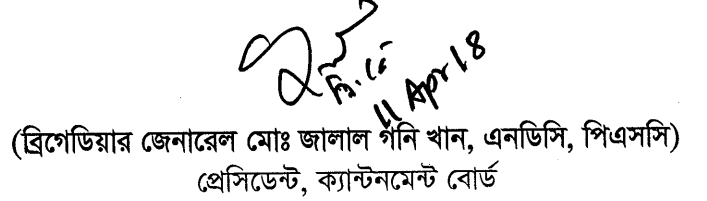 11 Apr 18
(ব্রিগেডিয়ার জেনারেল মোঃ জালাল গনি খান, এনডিসি, পিএসসি)
প্রেসিডেন্ট, ক্যান্টনমেন্ট বোর্ড